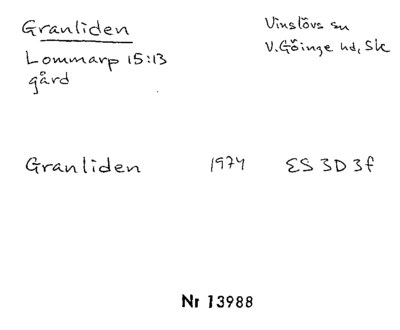 Granliden
Vinslövs sn
Lommarp 15:13
V. Göinge hd, Sk
gård
Granliden 1974 ES 3D3f
Nr 13988